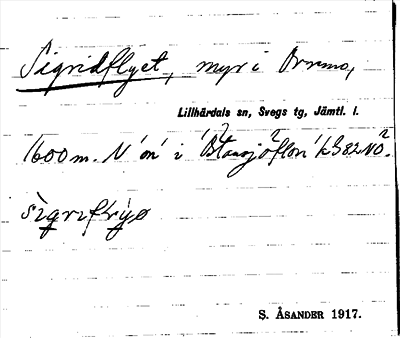 Sigridflyet, myr i Orrmo,
Lillhärdals sn, Svegs tg, Jämtl. l.
1600 m. N 'ön' i 'Blåsjöflon' k882NÖ.
sìgrıflýo
S. ÅSANDER 1917.